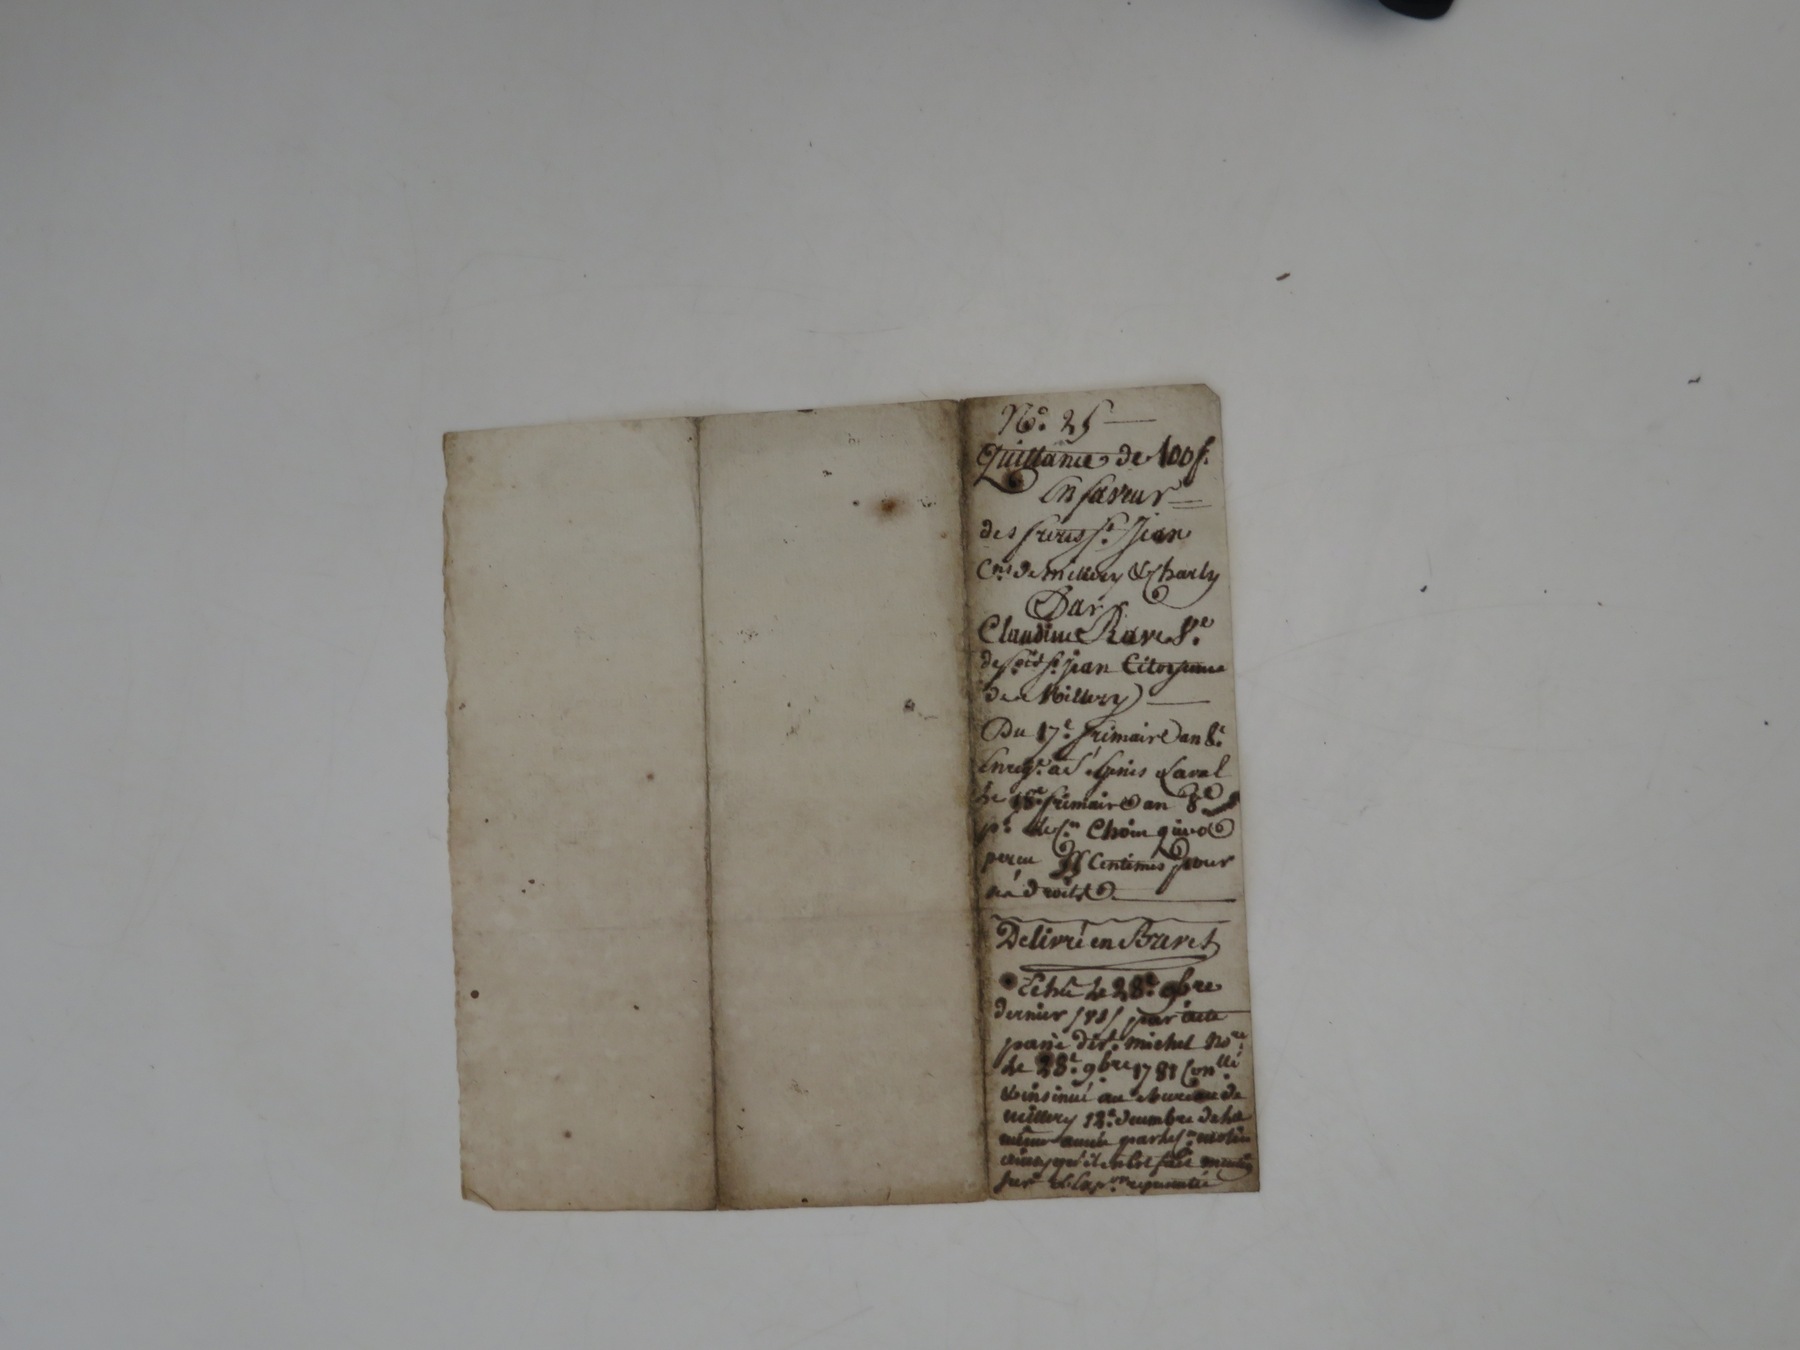 N.o 25
Quittance de 100 f.
En faveur
des freres S.t Jean
C.ns de Millery & Charly
Par
Claudine Rave V.e
de S.t Jean Citoyenne
de Millery
Du 17.e frimaire an 8.e
Enreg.é a S.t Genis Laval
le 18.e frimaire an 8.e
p.r le C.n qui a
percu 55 Centimes pour
ses droits
Delivré en Brevet
Echu le 28.e 9bre
dernier par acte
passé dev.t michel No.re
le 28.e 9bre 1781 Con.llé
& insinué au Bureau de
millery 12.e decembre de la
même année par le S.r
ainsy qu'il en est fait mention
sur